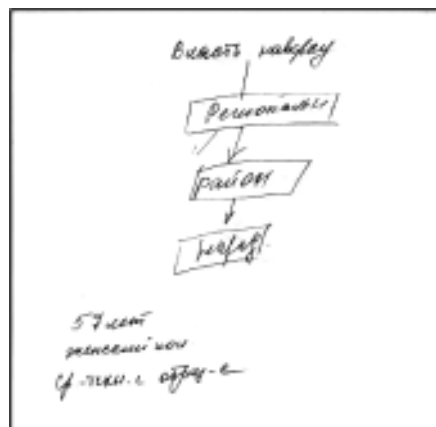 Власть наверху
Регионами
район
народ
57 лет
женский пол
ср-техн-е образ-е